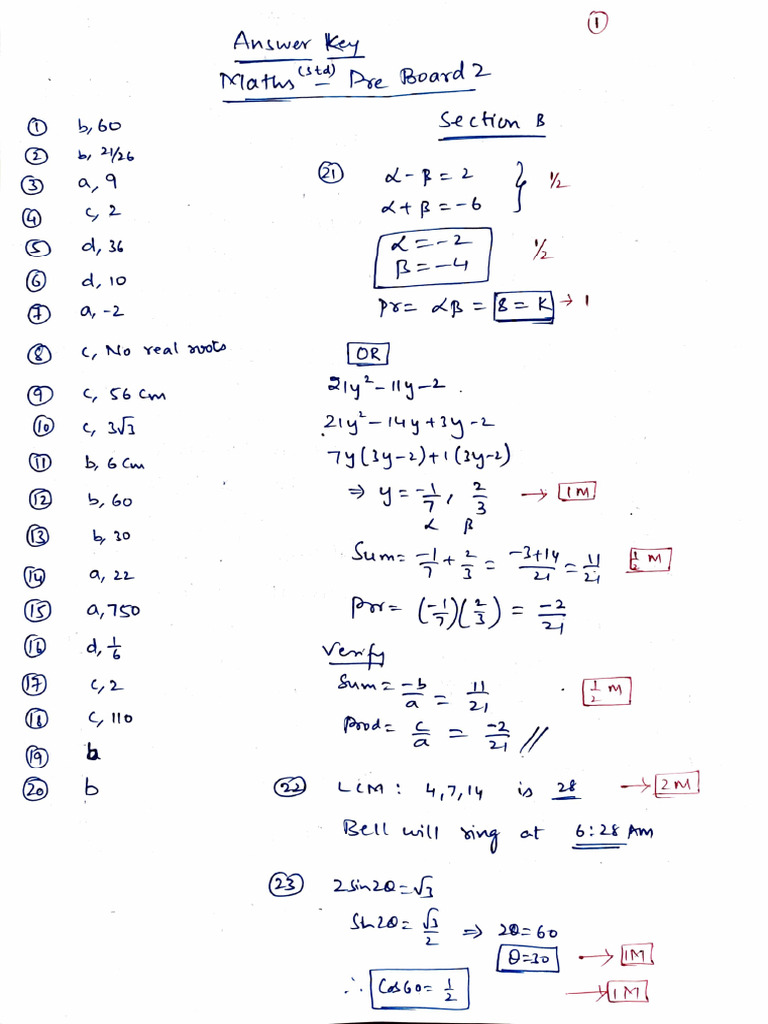 ①
Answer Key
Maths (Std) – Pre Board 2
① b, 60
② b, 21/26
③ a, 9
④ c, 2
⑤ d, 36
⑥ d, 10
⑦ a, -2
⑧ c, No real roots
⑨ c, 56 cm
⑩ c, 3√3
⑪ b, 6 cm
⑫ b, 60
⑬ b, 30
⑭ a, 22
⑮ a, 750
⑯ d, 1/6
⑰ c, 2
⑱ c, 110
⑲ b
⑳ b
Section B
㉑ α - β = 2
α + β = -6 } 1/2
α = -2
β = -4 1/2
Pr = αβ = 8 = K → 1
OR
21y² - 11y - 2.
21y² - 14y + 3y - 2
7y(3y-2)+1(3y-2)
⇒ y = -1/7, 2/3 → 1M
α β
Sum = -1/7 + 2/3 = -3+14/21 = 11/21 1/2 M
Prr = (-1/7)(2/3) = -2/21
Verify
Sum = -b/a = 11/21 1/2 M
Prod = c/a = -2/21 //
㉒ LCM : 4,7,14 is 28 → 2M
Bell will ring at 6:28 Am
㉓ 2sin2θ = √3
Sin2θ = √3/2 ⇒ 2θ = 60
θ = 30 → 1M
∴ Cos60 = 1/2 → 1M